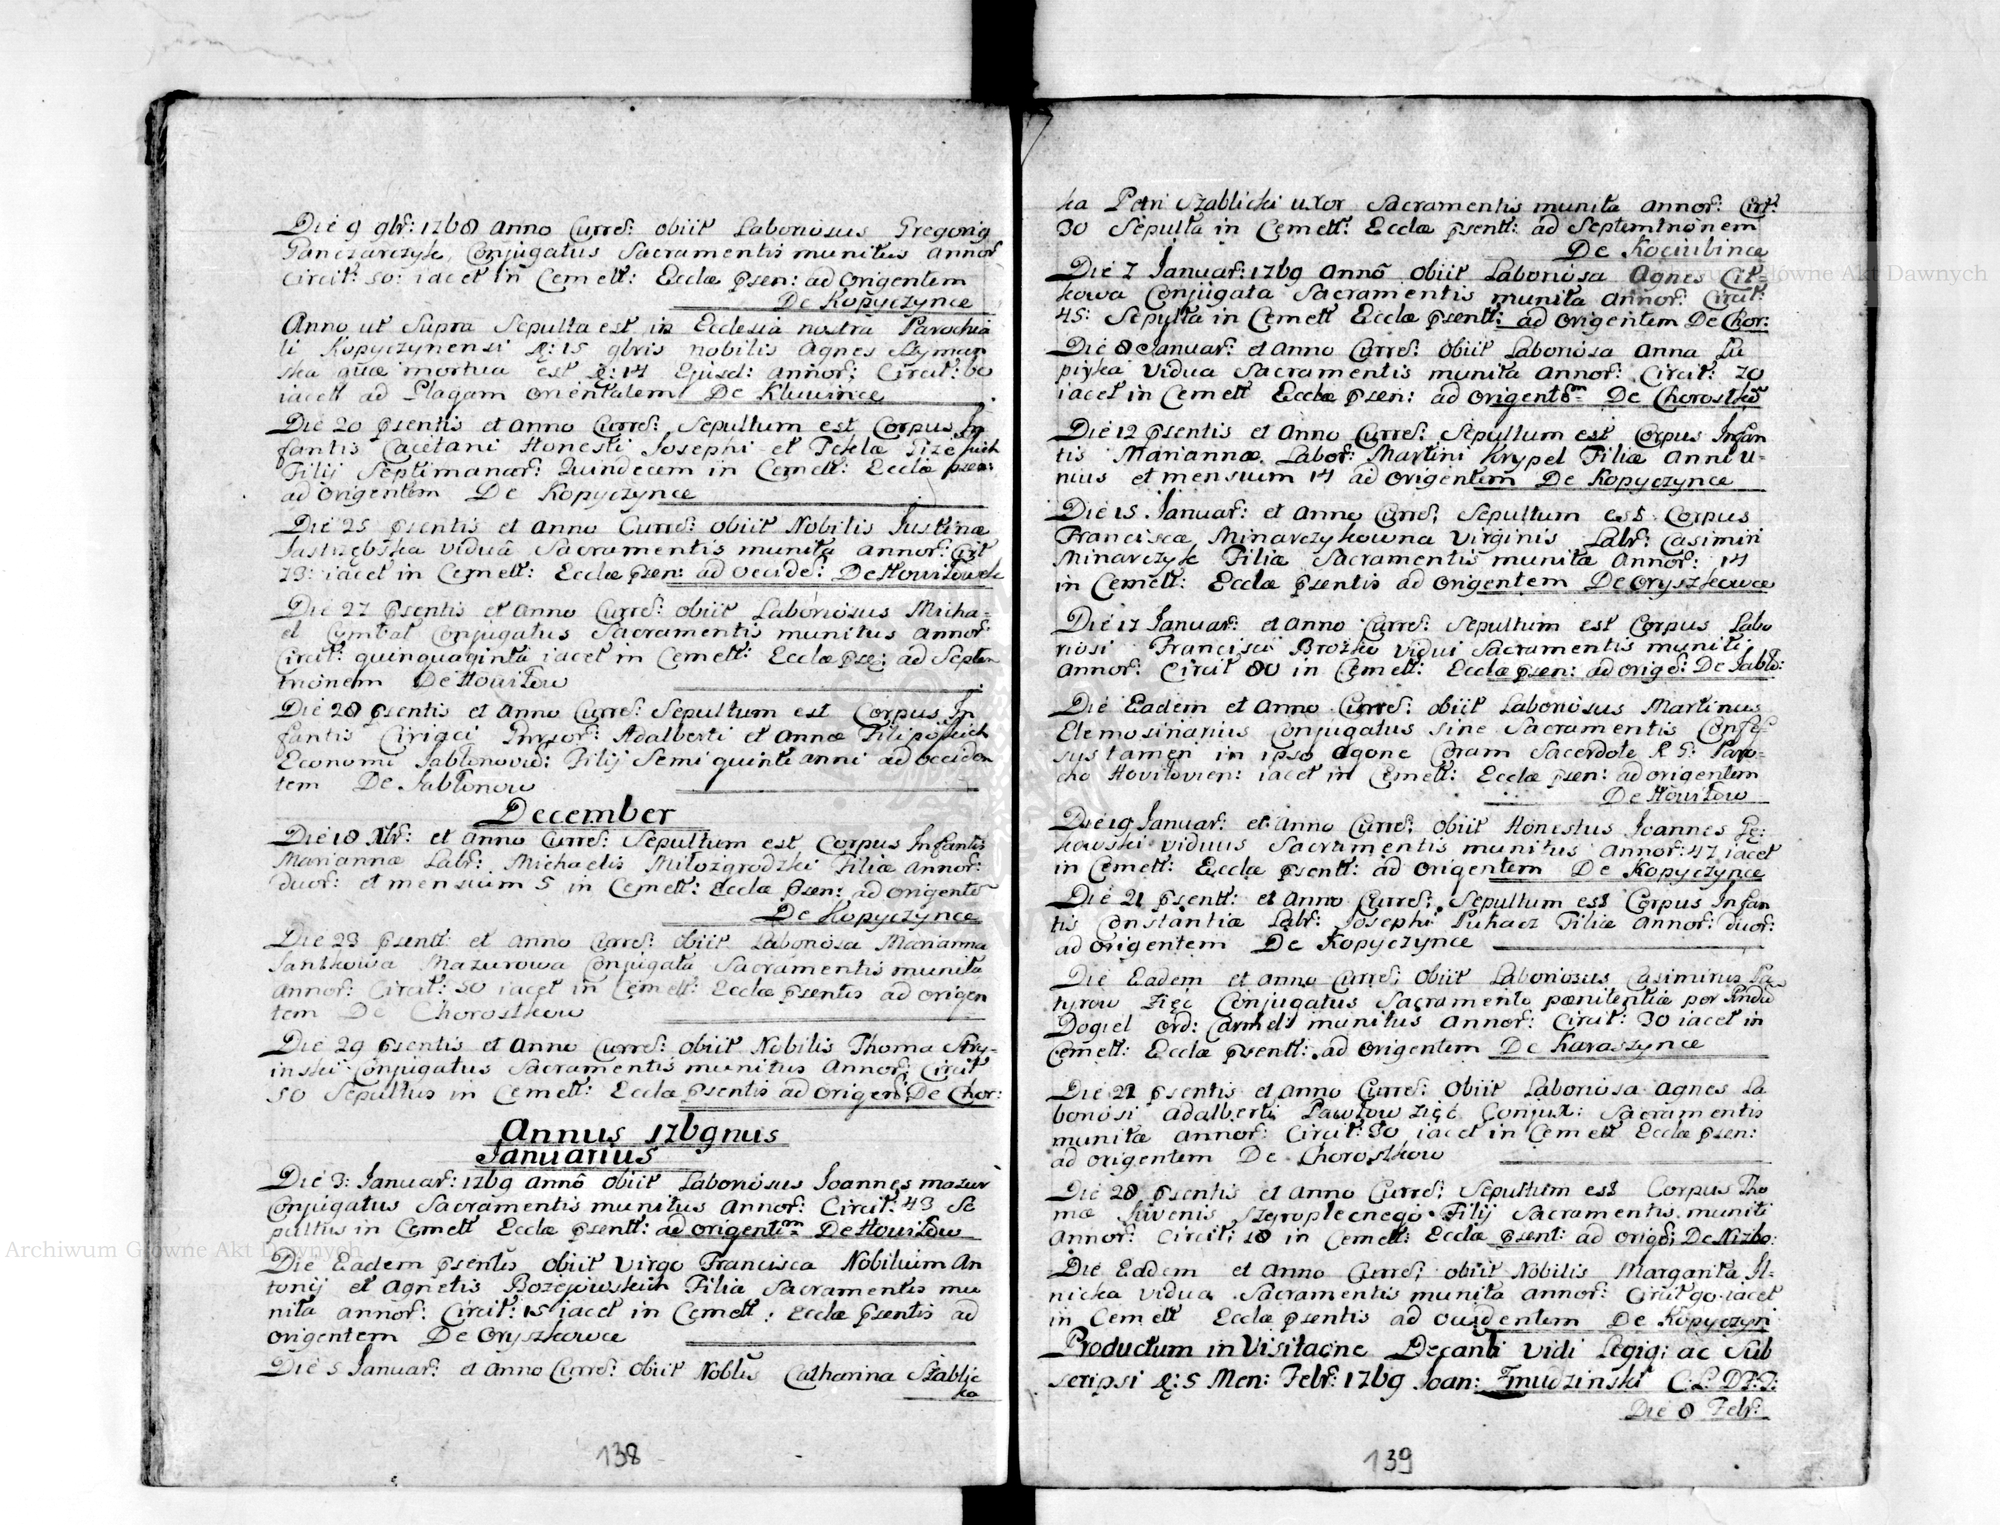 Die 9 9br: 1768 Anno Curres: obiit Laboriosus Gregorig
Panczarczyk, Conjugatus Sacramentis munitus annor
Circit: 50: iacet in Cemett: Ecclæ psen: ad Origentem
De Kopyczynce
Anno ut Supra Sepulta est in Ecclesia nostra Parochia
li Kopyczynensi d: 15 9bris nobilis Agnes Szyman
ska quæ mortua est d: 14 Ejusd: annor: Circit: 60
iacett ad Plagam orientalem De Kluwince
Die 20 psentis et Anno Curres: Sepultum est Corpus In
fantis Cacetani Honesti Josephi et Teklæ
Filij Septimanar: Quindecem in Cemett: Ecclæ psen:
ad Origentem De Kopyczynce
Die 25 psentis et Anno Curres: obiit Nobilis Justina
Jastrzębska vidua Sacramentis munita annor: Circit
73: iacet in Cemett: Ecclæ psen: ad occide: De Howiłow
Die 27 psentis et Anno Curres: obiit Laboriosus Micha-
el Cymbal Conjugatus Sacramentis munitus annor
Circit: quinquaginta iacet in Cemett: Ecclæ pse: ad Septen
trionem De Howiłow
Die 28 psentis et Anno Curres: Sepultum est Corpus In
fantis Ciriaci Adalberti et Annæ
Economi Jabłonovie: Filij Semi quinti anni ad occiden
tem De Jabłonow
December
Die 18 Xbr: et Anno Curres: Sepultum est Corpus Infantis
Mariannæ Labr: Michaelis Miłozgrodzki Filiæ Annor:
Duor: et mensium 5 in Cemett: Ecclæ psen: ad origente
De Kopyczynce
Die 23 psentt: et Anno Curres: obiit Laboriosa Marianna
Jantkowa Mazurowa Conjugata Sacramentis munita
annor: Circit: 30 iacet in Cemett: Ecclæ psentis ad origen
tem De Chorostkow
Die 29 psentis et Anno Curres: obiit Nobilis Thoma Stry-
inski Conjugatus Sacramentis munitus Annor: Circit
50 Sepultus in Cemett: Ecclæ psentis ad origen: De Chor:
Annus 1769nus
Januarius
Die 3: Januar: 1769 Anno obiit Laboriosus Joannes mazur
Conjugatus Sacramentis munitus Annor: Circit: 43 Se
pultus in Cemett Ecclæ psentt: ad origentem De Howiłow
Die Eadem psentis obiit virgo Francisca Nobilium An
tonij et Agnetis Bożejowskich Filia Sacramentis mu
nita annor: Circit: 15 iacet in Cemett: Ecclæ psentis ad
origentem De Oryszkowce
Die 5 Januar: et Anno Curres: obiit Noblis Catharina Szablic
ka
138
ka Petri Szablicki uxor Sacramentis munita annor: Cirt:
30 Sepulta in Cemett: Ecclæ psentt: ad Septemtrionem
De Kociubince
Die 7 Januar: 1769 Anno obiit Laboriosa Agnes Cit-
kowa Conjugata Sacramentis munita annor: Circit:
45: Sepulta in Cemett Ecclæ psentt: ad origentem De Chor:
Die 8 Januar: et Anno Curres: obiit Laboriosa Anna Lu
piyka vidua Sacramentis munita annor: Circit: 70
iacet in Cemett Ecclæ psen: ad origentem De Chorostków
Die 12 psentis et Anno Curres: Sepultum est Corpus Infan
tis Mariannæ Labor: Martini Krypel Filiæ Anni u-
nius et mensium 14 ad origentem De Kopyczynce
Die 15 Januar: et Anno Curres: Sepultum est Corpus
Francisca Minarczykowna Virginis Labr: Casimiri
Minarczyk Filiæ Sacramentis munitæ Annor: 14
in Cemett: Ecclæ psentis ad origentem De Oryszkowce
Die 17 Januar: et Anno Curres: Sepultum est Corpus Labo
riosi Francisci Brozko vidui Sacramentis muniti
annor: Circit 80 in Cemett: Ecclæ psen: ad orige: De Jabło:
Die Eadem et Anno Curres: obiit Laboriosus Martinus
Elemosinarius Conjugatus sine Sacramentis Confes
sus tamen in ipso agone Coram Sacerdote R P: Paro-
cho Hovilovien: iacet in Cemett: Ecclæ psen: ad origentem
De Howiłow
Die 19 Januar: et Anno Curres: obiit Honestus Joannes Gę:
kowski viduus Sacramentis munitus Annor: 47 iacet
in Cemett: Ecclæ psentt: ad origentem De Kopyczynce
Die 21 psentt: et Anno Curres: Sepultum est Corpus Infan
tis Constantiæ Labr: Josephi Puhacz Filiæ Annor: duor:
ad origentem De Kopyczynce
Die Eadem et Anno Curres: obiit Laboriosus Casimirus
tyrow Zięć Conjugatus Sacramento pœnitentiæ per
Dogiel Ord: Carmel: munitus Annor: Circit: 30 iacet in
Cemett: Ecclæ psentt: ad origentem De Karaszynce
Die 22 psentis et Anno Curres: obiit Laboriosa Agnes La
boriosi Adalberti Pawłow Zięć Conjux: Sacramentis
munita annor: Circit: 30 iacet in Cemett Ecclæ psen:
ad origentem De Chorostkow
Die 28 psentis et Anno Curres: Sepultum est Corpus Tho
mæ Juvenis Szyroplecnego Filij Sacramentis muniti
Annor: Circit: 18 in Cemett: Ecclæ psent: ad orige: De Nizbo:
Die Eadem et Anno Curres: obiit Nobilis Margarita Il-
nicka vidua Sacramentis munita annor: Circit 90 iacet
in Cemett Ecclæ psentis ad occidentem De Kopyczyn
Productum in Visitaone Decanli vidi Legig: ac Sub
scripsi d: 5 Men: Febr: 1769 Joan: Zmudzinski C: L: D: P: T:
Die 8 Febr:
139
Archiwum Główne Akt Dawnych